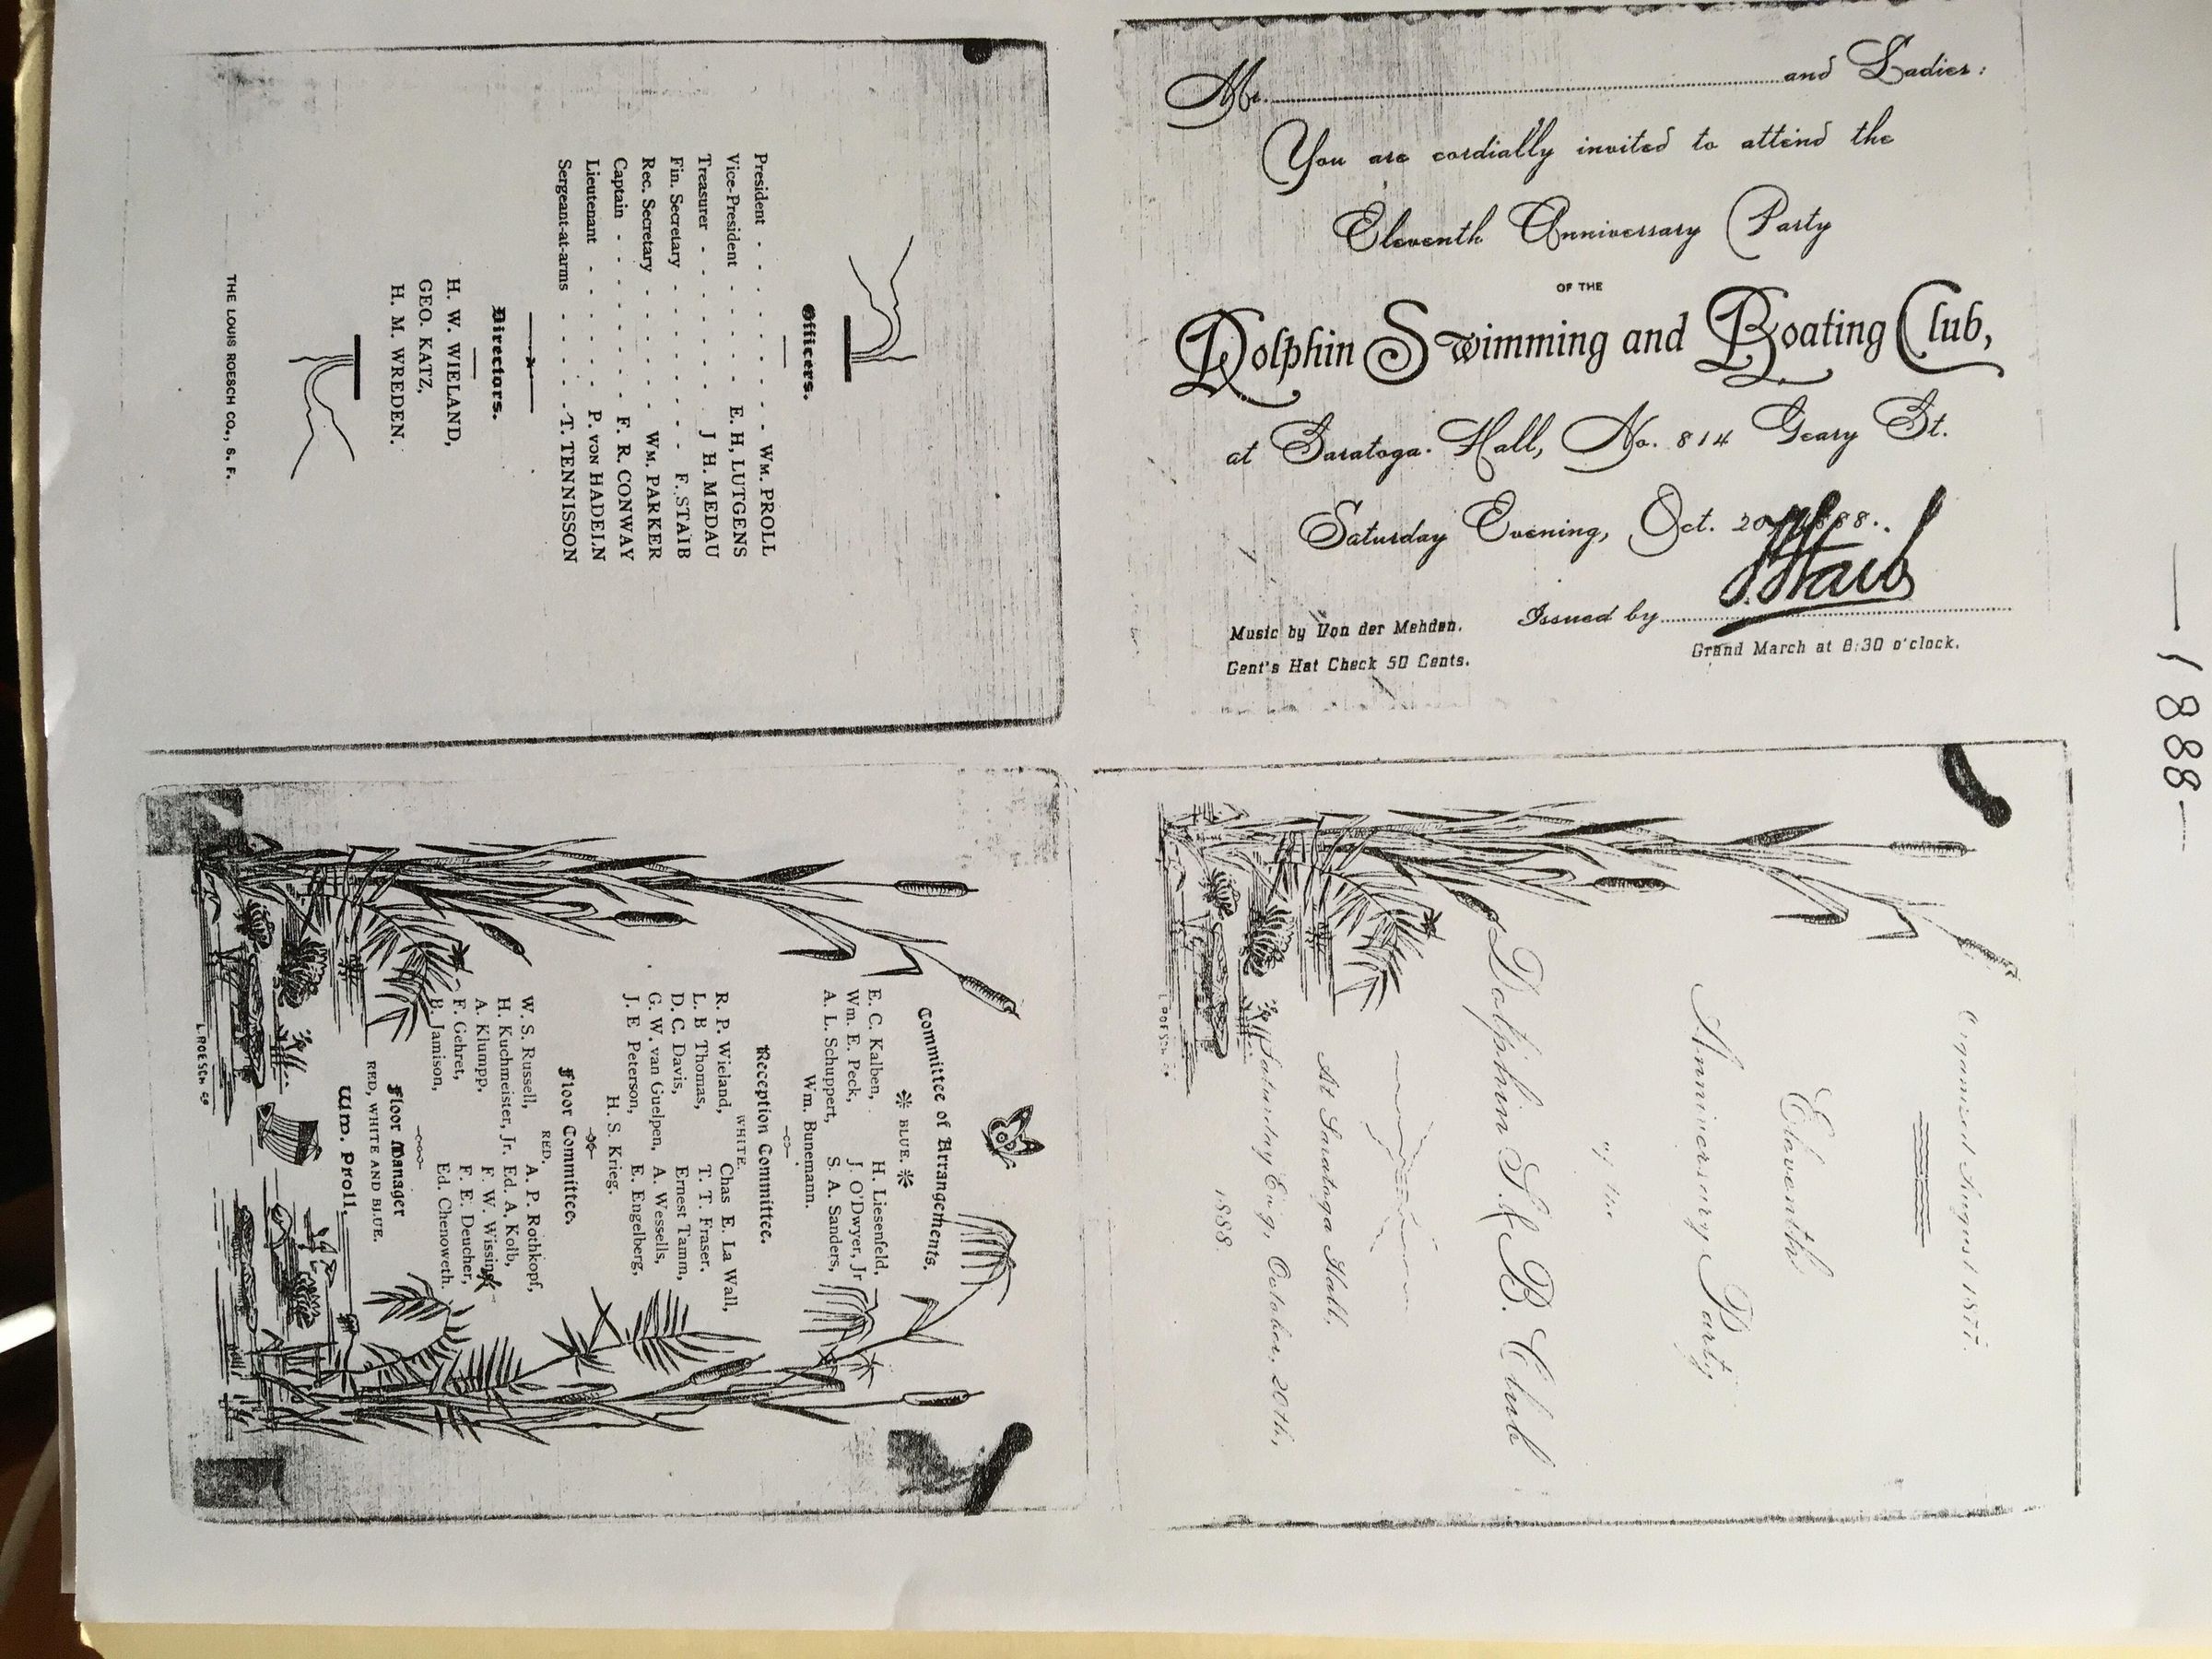 Mr. and Ladies:
You are cordially invited to attend the
Eleventh Anniversary Party
OF THE
Dolphin Swimming and Boating Club,
at Saratoga Hall, No. 814 Geary St.
Saturday Evening, Oct. 20 1888.
Issued by F. Staib
Music by Von der Mehden.
Gent's Hat Check 50 Cents.
Grand March at 8:30 o'clock.
— 1888 —
Officers.
President - - - - - - - - WM. PROLL
Vice-President - - - - - E. H, LUTGENS
Treasurer - - - - - - J H. MEDAU
Fin. Secretary - - - - - - - F. STAIB
Rec. Secretary - - - - - WM. PARKER
Captain - - - - - - - F. R. CONWAY
Lieutenant - - - - - P. VON HADELN
Sergeant-at-arms - - - - - T. TENNISSON
Directors.
H. W. WIELAND,
GEO. KATZ,
H. M. WREDEN.
THE LOUIS ROESCH CO., S. F.
Organized August 1877.
Eleventh
Anniversary Party
of the
Dolphin S. & B. Club
At Saratoga Hall,
Saturday Ev'g, October, 20th,
1888
L. ROESCH Co.
Committee of Arrangements.
BLUE.
E. C. Kalben, H. Liesenfeld,
Wm. E. Peck, J. O'Dwyer, Jr
A. L. Schuppert, S. A. Sanders,
Wm. Bunemann.
Reception Committee.
WHITE.
R. P. Wieland, Chas E. La Wall,
L. B Thomas, T. T. Fraser.
D. C. Davis, Ernest Tamm,
G. W. van Guelpen, A. Wessells,
J. E Peterson, E. Engelberg,
H. S. Krieg.
Floor Committee.
RED.
W. S. Russell, A. P. Rothkopf,
H. Kuchmeister, Jr. Ed. A. Kolb,
A. Klumpp, F. W. Wissing
F. Gehret, F. E. Deucher,
B. Jamison, Ed. Chenoweth.
Floor Manager
RED, WHITE AND BLUE.
Wm. Proll.
L. ROESCH Co